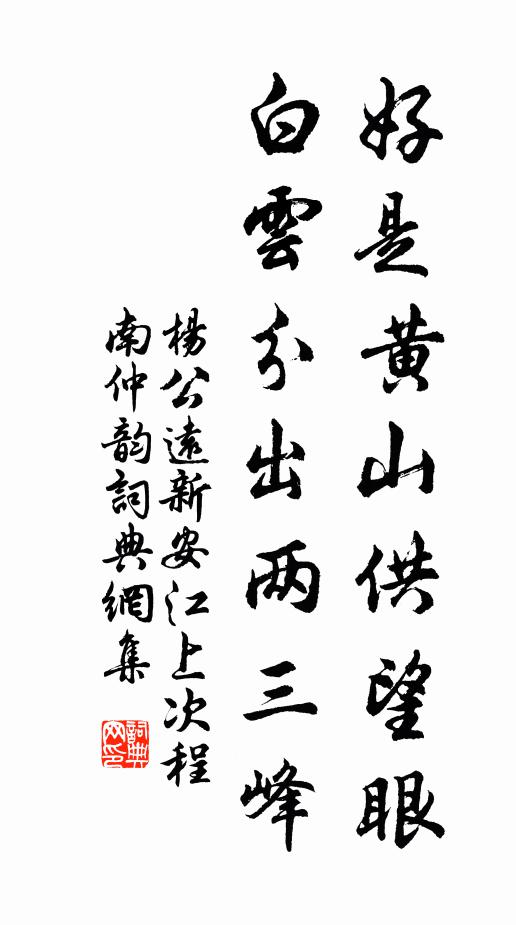 好是黄山供望眼
白雲分出两三峰
楊公遠新安江上次程
南仲韵詞典網集
詞典
网印